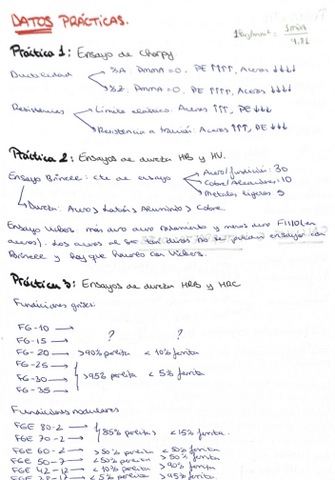 DATOS PRÁCTICAS.
Práctica 1: Ensayo de Charpy
Ductilidad
%A. PMMA = 0. PE ↑↑↑↑, Aceros ↓↓↓↓
%Z. PMMA = 0. PE ↑↑↑↑, Aceros ↓↓↓↓
Resistencias
Límite elástico: Aceros ↑↑↑, PE ↓↓↓
Resistencia a tracción: Aceros ↑↑↑, PE ↓↓↓
Práctica 2: Ensayos de dureza HB y HV.
Ensayo Brinell: cte de ensayo
Acero/fundición: 30
Cobre/Aleaciones: 10
Metales ligeros 5
Dureza: Acero > Latón > Aluminio > Cobre.
Ensayo Vickers más duro y menos duro F1110 (en
aceros). Los aceros al ser tan duros no se pueden ensayar con
Brinell y hay que hacerlo con Vickers.
Práctica 3: Ensayos de dureza HRB y HRC
Fundiciones grises:
FG-10 →
FG-15 → ? ?
FG-20 → >90% perlita < 10% ferrita
FG-25 →
FG-30 → >95% perlita < 5% ferrita
FG-35 →
Fundiciones nodulares
FGE 80-2 →
FGE 70-2 → 85% perlita > <15% ferrita.
FGE 60-2 → >50% perlita < 50% ferrita
FGE 50-7 → <50% perlita > 50% ferrita
FGE 42-12 → < 10% perlita > 90% ferrita
< 5% perlita